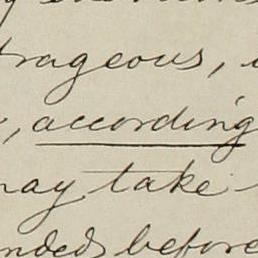 rageous,
, according
may take
nded before